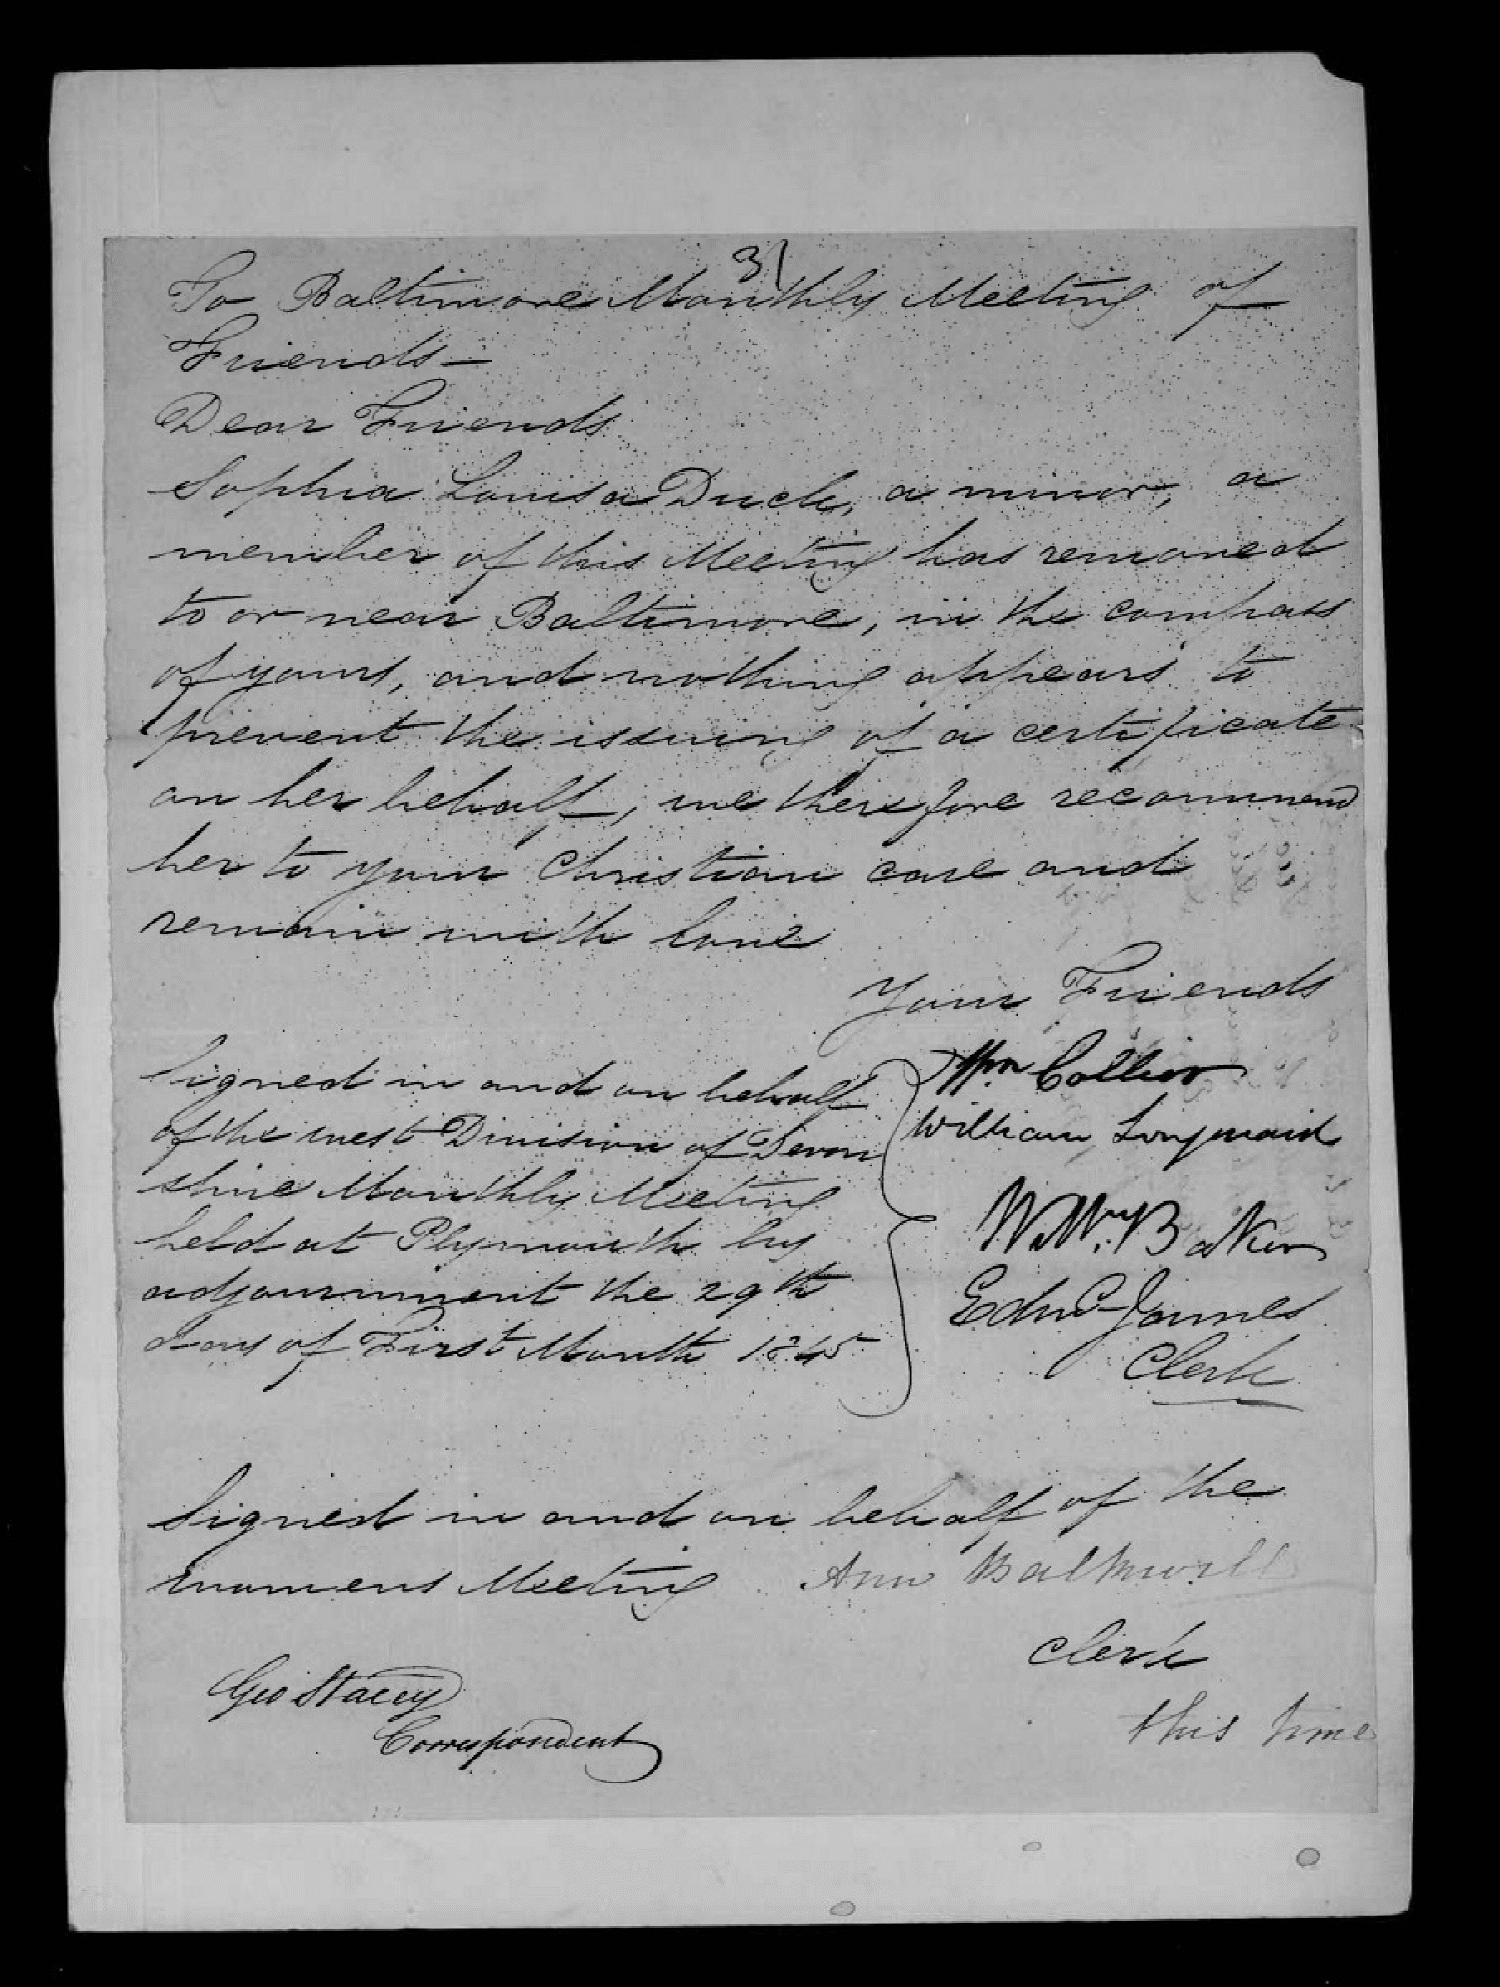 31
To Baltimore Monthly Meeting of
Friends—
Dear Friends
Sophia Louisa Duck, a minor, a
member of this Meeting has removed
to or near Baltimore, in the compass
of yours, and nothing appears to
prevent the issuing of a certificate
on her behalf, we therefore recommend
her to your Christian care and
remain with love
Your Friends
Signed in and on behalf
of the west Division of Devon
shire Monthly Meeting
held at Plymouth by
adjournment the 29th
day of First Month 1845
Wm Collier
William Longmaid
Wm. Baker
Edmd James
Clerk
Signed in and on behalf of the
womens Meeting Ann Balkwill
Clerk
this time
Geo Stacey
Correspondent